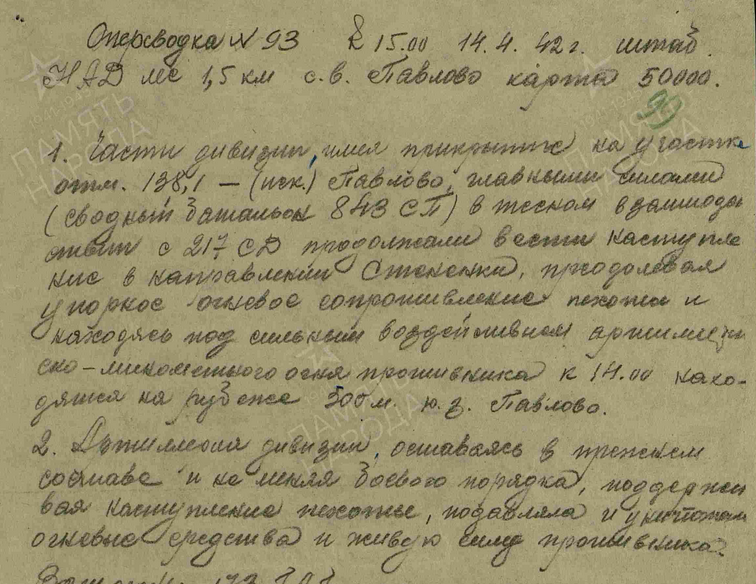 Оперсводка № 93 к 15.00 14.4.42 г. штаб.
лес 1,5 км с.в. Павлово карта 50000.
99
1. Части дивизии, имея прикрытие на участке
отм. 138,1 – (иск.) Павлово, главными силами
(сводный батальон 843 СП) в тесном взаимодей
ствии с 217 СД продолжали вести наступле
ние в направлении преодолевая
упорное огневое сопротивление пехоты и
находясь под сильным воздействием артиллерий
ско-минометного огня противника к 14.00 нахо-
дятся на рубеже 300 м. ю.з. Павлово.
2. Артиллерия дивизии, оставаясь в прежнем
составе и не меняя боевого порядка, поддержи
вая наступление пехоты, подавляла и уничтожала
огневые средства и живую силу противника.
ПАМЯТЬ НАРОДА